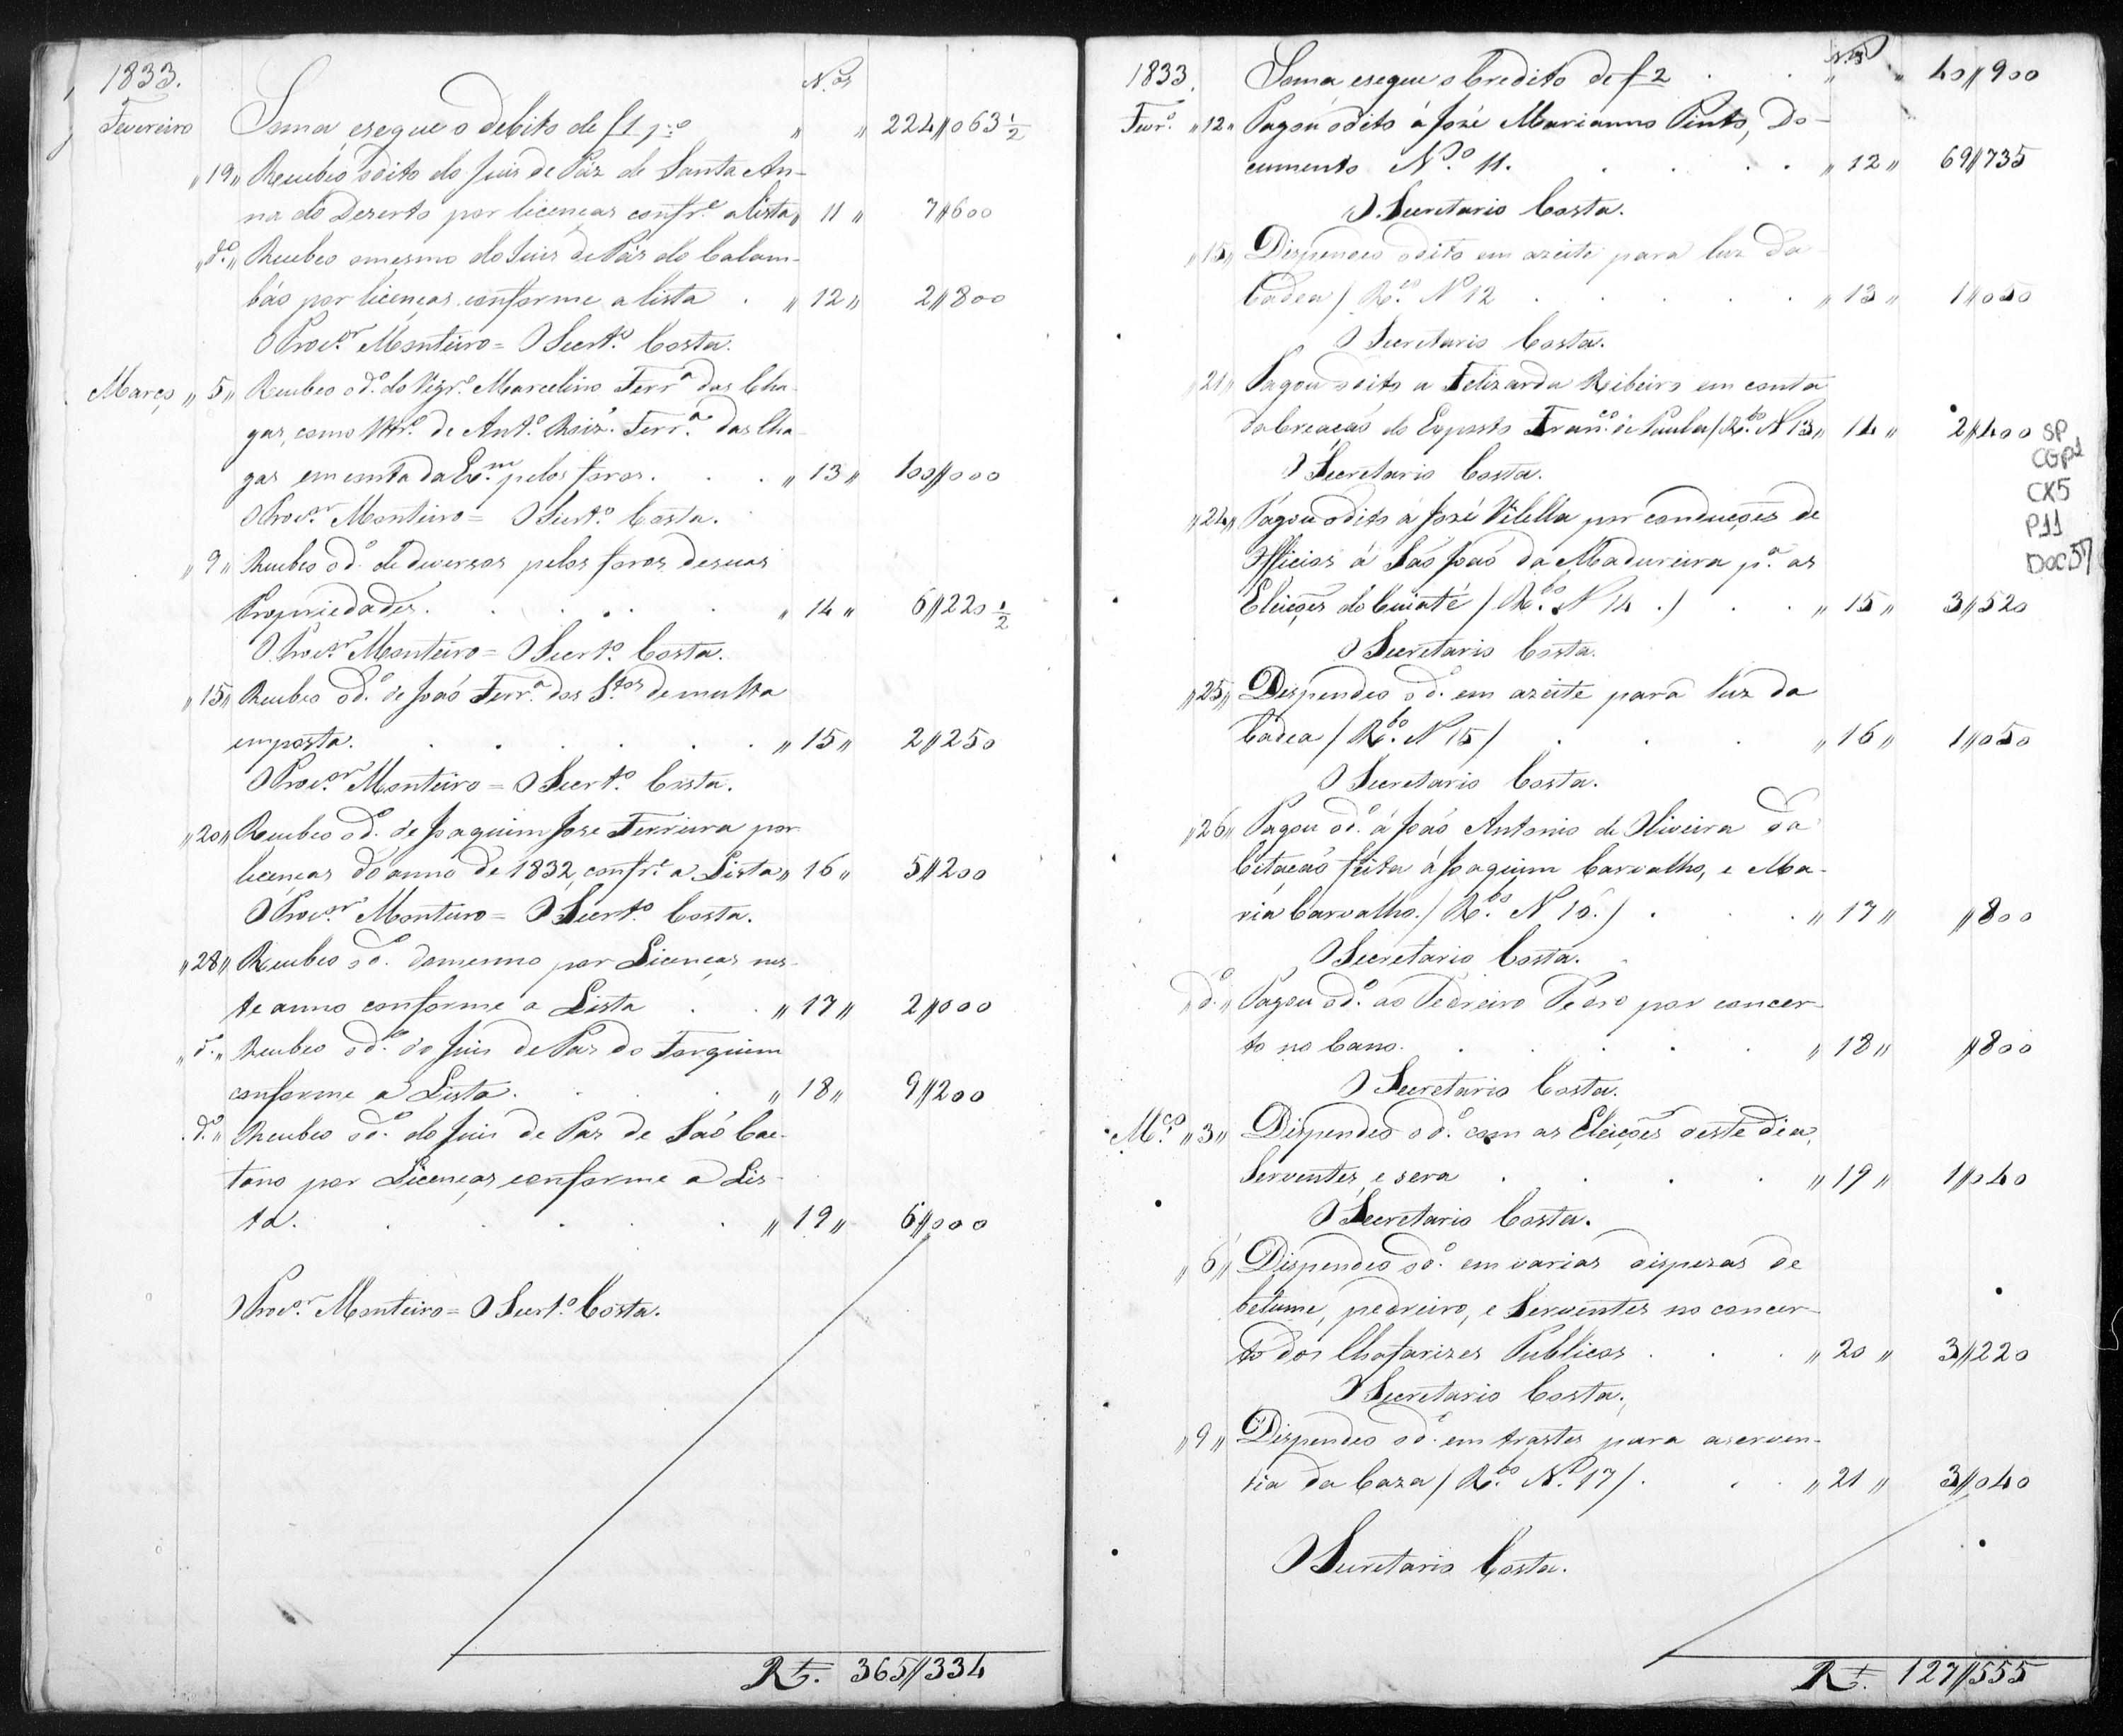 1833. N.os
Fevereiro Soma, esegue o debito de f 1 " " 224//063 1/2
"19" Recebeo odito do Juis de Páz de Santa An-
na do Dezerto por licenças confr.e a lista " 11 " 7//600
"d.o" Recebeo omesmo do Juis de Páz do Calam-
báo por licenças conforme a lista . " 12 " 2//800
O Proc.or Monteiro = O Secrt.o Costa.
Março " 5 " Recebeo o d.o do Vigr.o Marcelino Ferr.a das Cha-
gas, como de Ant.o Roiz. Ferr.a das Cha-
gas em conta da Ex.m pelos foros. . . " 13 " 100//000
O Proc.or Monteiro = O Secrt.o Costa.
" 9 " Recebeo o d.o de diversos pelos foros desuas
Propriedades. . . . . " 14 " 6//220 1/2
O Proc.or Monteiro = O Secrt.o Costa.
"15" Recebeo o d.o de João Ferr.a dos S.tos de multa
emposta. . . . . . . " 15 " 2//250
O Proc.or Monteiro = O Secrt.o Costa.
"20" Recebeo o d.o de Joaquim Jose Ferreira por
licenças do anno de 1832, confr.e a Lista " 16 " 5//200
O Proc.or Monteiro = O Secrt.o Costa.
"28" Recebeo o d.o domesmo por Licenças nes-
te anno conforme a Lista . . " 17 " 2//000
"d.o" Recebeo o d.o do Juis de Paz do Forquim
conforme a Lista. . . . " 18 " 9//200
d.o " Recebeo o d.o do Juis de Paz de Saó Cae-
tano por Licenças conforme a Lis-
ta. . . . . . " 19 " 6//000
O Proc.or Monteiro = O Secrt.o Costa.
R.s 365//334
1833. Soma esegue o Credito de f 2 . . N.os " " 40//900
Fevr.o "12" Pagou odito á José Marianno Pinto, Do-
cumento N.o 11. . . . . " 12 " 69//735
O Secretario Costa.
"15" Dispendeo odito em azeite para luz da
Cadea / R.bo N 12 . . . . . " 13 " 1//050
O Secretario Costa.
"21" Pagou odito a Felizarda Ribeiro em conta
da Creação do Exposto Fran.co de Paula / R.bo N 13 " 14 " 2//400
O Secretario Costa.
"24" Pagou odito á José Vilella por conducçoes de
Officios á Saó Joaó da Madureira p.a as
Eleiçoes do Cuiaté / R.bo N 14 . / . . " 15 " 3//520
O Secretario Costa.
"25" Dispendeo o d.o em azeite para luz da
Cadea / R.bo N 15 / . . . " 16 " 1//050
O Secretario Costa.
"26" Pagou o d.o á Joaó Antonio de Oliveira da
Citaçaó feita á Joaquim Carvalho, e Ma-
ria Carvalho. / R.bo N 16. / . . " 17 " //800
O Secretario Costa.
"d.o" Pagou o d.o ao Pedreiro Pedro por concer-
to no Cano. . . . . . " 18 " //800
O Secretario Costa.
M.ço "3" Dispendeo o d.o com as Eleiçoes deste dia,
Serventes, e sera . . . . " 19 " 1//040
O Secretario Costa.
" 6 " Dispendeo o d.o em varias dispezas de
betume, pedreiro, e Serventes no concer-
to dos Chafarizes Publicos . . . " 20 " 3//220
O Secretario Costa.
" 9 " Dispendeo o d.o em trastes para aserven-
tia da Caza / R.bo N.o 17 / . . . " 21 " 3//040
O Secretario Costa.
R.s 127//555
SP
CGP1
CX5
P11
Doc57